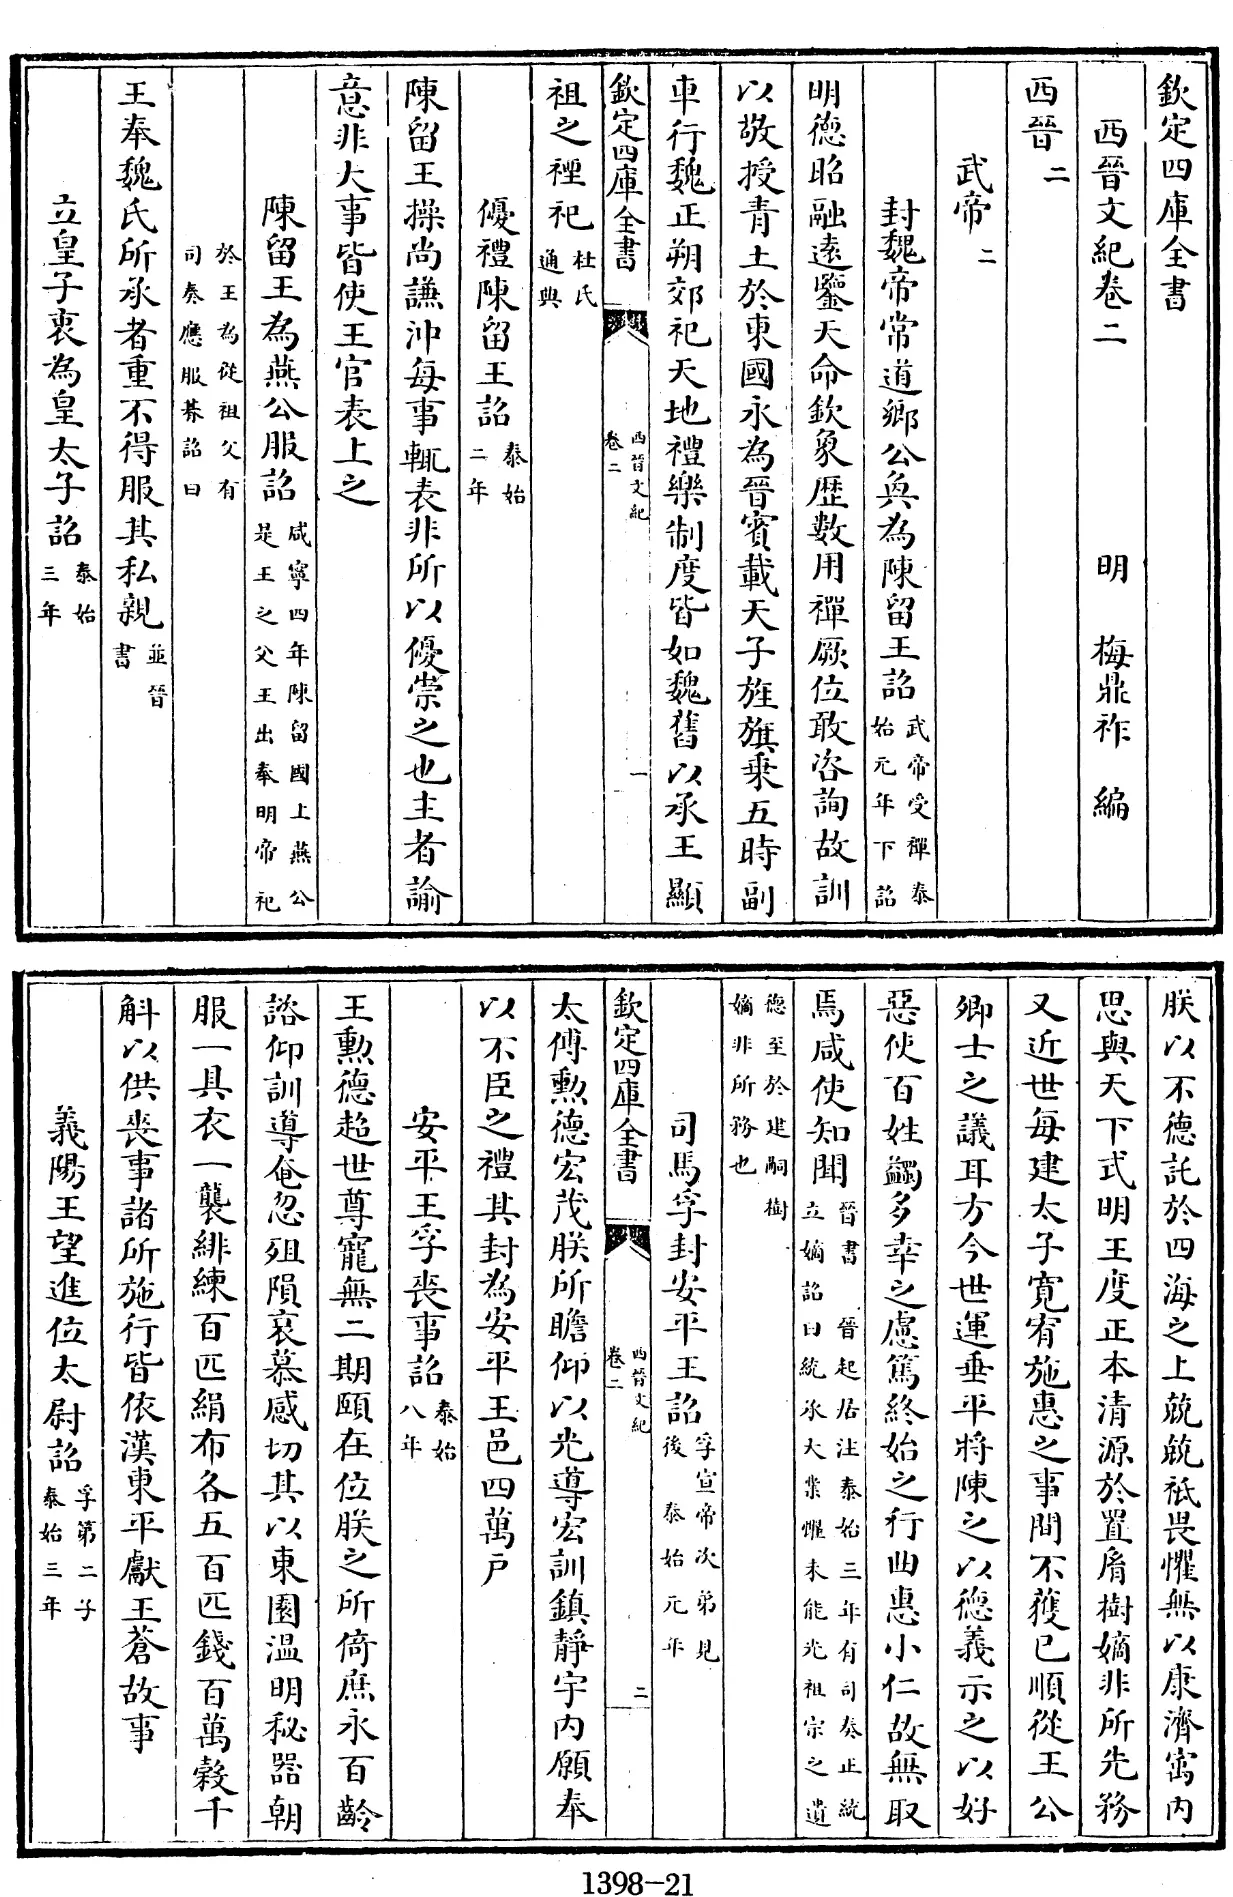 欽定四庫全書
西晉文紀卷二　明　梅鼎祚　編
西晉二
武帝二
封魏帝常道鄉公奐為陳留王詔武帝受禪泰始元年下詔
明德昭融遠鑒天命欽象歴數用禪厥位敢咨詢故訓
以敬授青土於東國永為晉賓載天子旌旗乗五時副
車行魏正朔郊祀天地禮樂制度皆如魏舊以承王顯
欽定四庫全書　西晉文紀卷二　一
祖之禋祀杜氏通典
優禮陳留王詔泰始二年
陳留王操尚謙沖每事輒表非所以優崇之也主者諭
意非大事皆使王官表上之
陳留王為燕公服詔咸寧四年陳留國上燕公是王之父王出奉明帝祀
於王為從祖父有司奏應服朞詔曰
王奉魏氏所承者重不得服其私親並晉書
立皇子衷為皇太子詔泰始三年
朕以不德託於四海之上兢兢祗畏懼無以康濟寓内
思與天下式明王度正本清源於置㣧樹嫡非所先務
又近世每建太子寛宥施惠之事間不獲已順從王公
卿士之議耳方今世運垂平將陳之以德義示之以好
惡使百姓蠲多幸之慮篤終始之行曲惠小仁故無取
焉咸使知聞晉書　晉起居注泰始三年有司奏正統立嫡詔曰統承大業懼未能光祖宗之遺
德至於建嗣樹嫡非所務也
司馬孚封安平王詔孚宣帝次弟見後　泰始元年
欽定四庫全書　西晉文紀卷二　二
太傅勲德宏茂朕所瞻仰以光導宏訓鎮靜宇内願奉
以不臣之禮其封為安平王邑四萬户
安平王孚喪事詔泰始八年
王勲德超世尊寵無二期頤在位朕之所倚庶永百齡
諮仰訓導奄忽殂隕哀慕感切其以東園温明秘器朝
服一具衣一襲緋練百匹絹布各五百匹錢百萬穀千
斛以供喪事諸所施行皆依漢東平獻王蒼故事
義陽王望進位太尉詔孚第二子泰始三年
1398-21